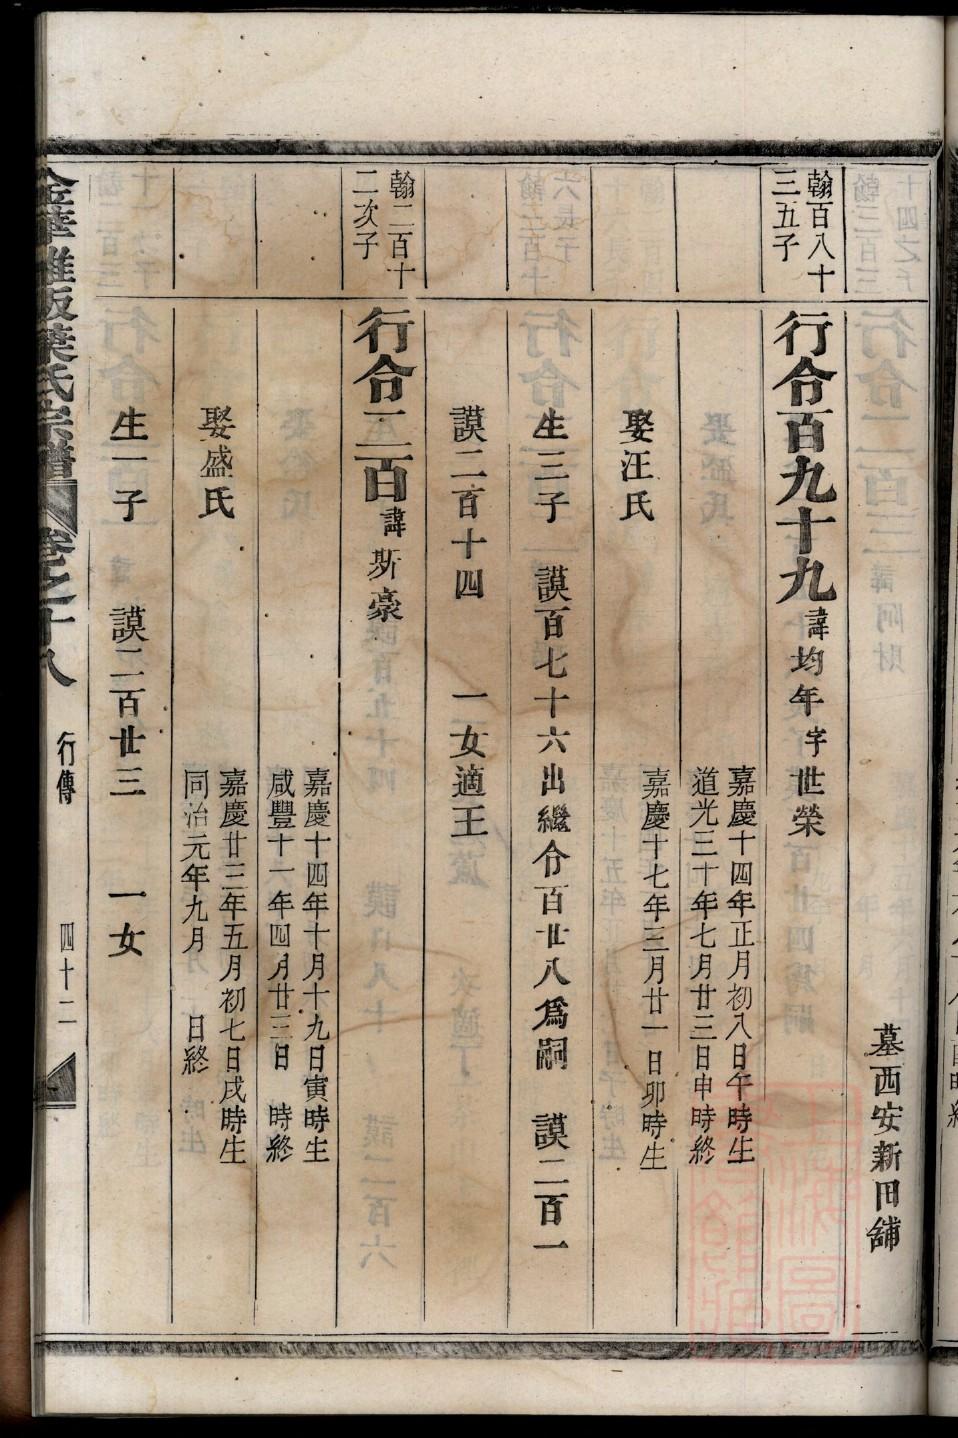 墓西安新田舖
翰百八十
三五子
行令百九十九 諱均年字世榮
嘉慶十四年正月初八日午時生
道光三十年七月廿三日申時終
娶汪氏
嘉慶十七年三月廿一日卯時生
生三子 謨百七十六出繼令百廿八爲嗣 謨二百一
謨二百十四 一女適王
翰二百十
二次子
行令二百 諱斯豪
嘉慶十四年十月十九日寅時生
咸豐十一年四月廿三日 時終
娶盛氏
嘉慶廿三年五月初七日戌時生
同治元年九月 日終
生一子 謨二百廿三 一女
金華雅畈葉氏宗譜 卷之十八 行傳 四十二